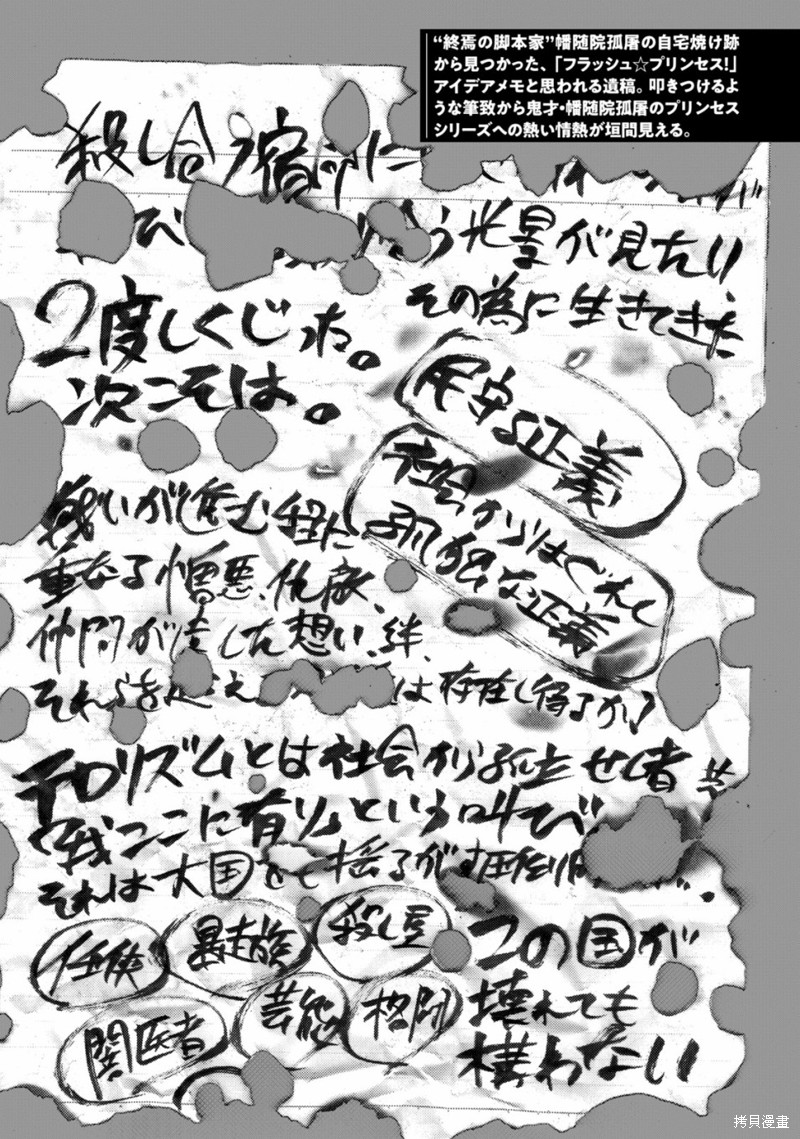 “終焉の脚本家”幡随院孤屠の自宅焼け跡
から見つかった、「フラッシュ☆プリンセス!」
アイデアメモと思われる遺稿。叩きつけるよ
うな筆致から鬼才・幡随院孤屠のプリンセス
シリーズへの熱い情熱が垣間見える。
殺し合う宿命に
び う光景が見たい、
その為に生きてきた
2度しくじった。
次こそは。
守る正義
社会からはぐれし
孤独な正義
戦いが進む程に
重なる憎悪、仇敵、
仲間が遺した想い、絆、
それらを超え は存在し得るか?
テロリズムとは社会から孤立せし者
「我ここに有り」という叫び
それは大国をも揺るがす圧倒的
任侠
暴走族
殺し屋
闇医者
芸能
格闘
この国が
壊れても
構わない
拷貝漫畫